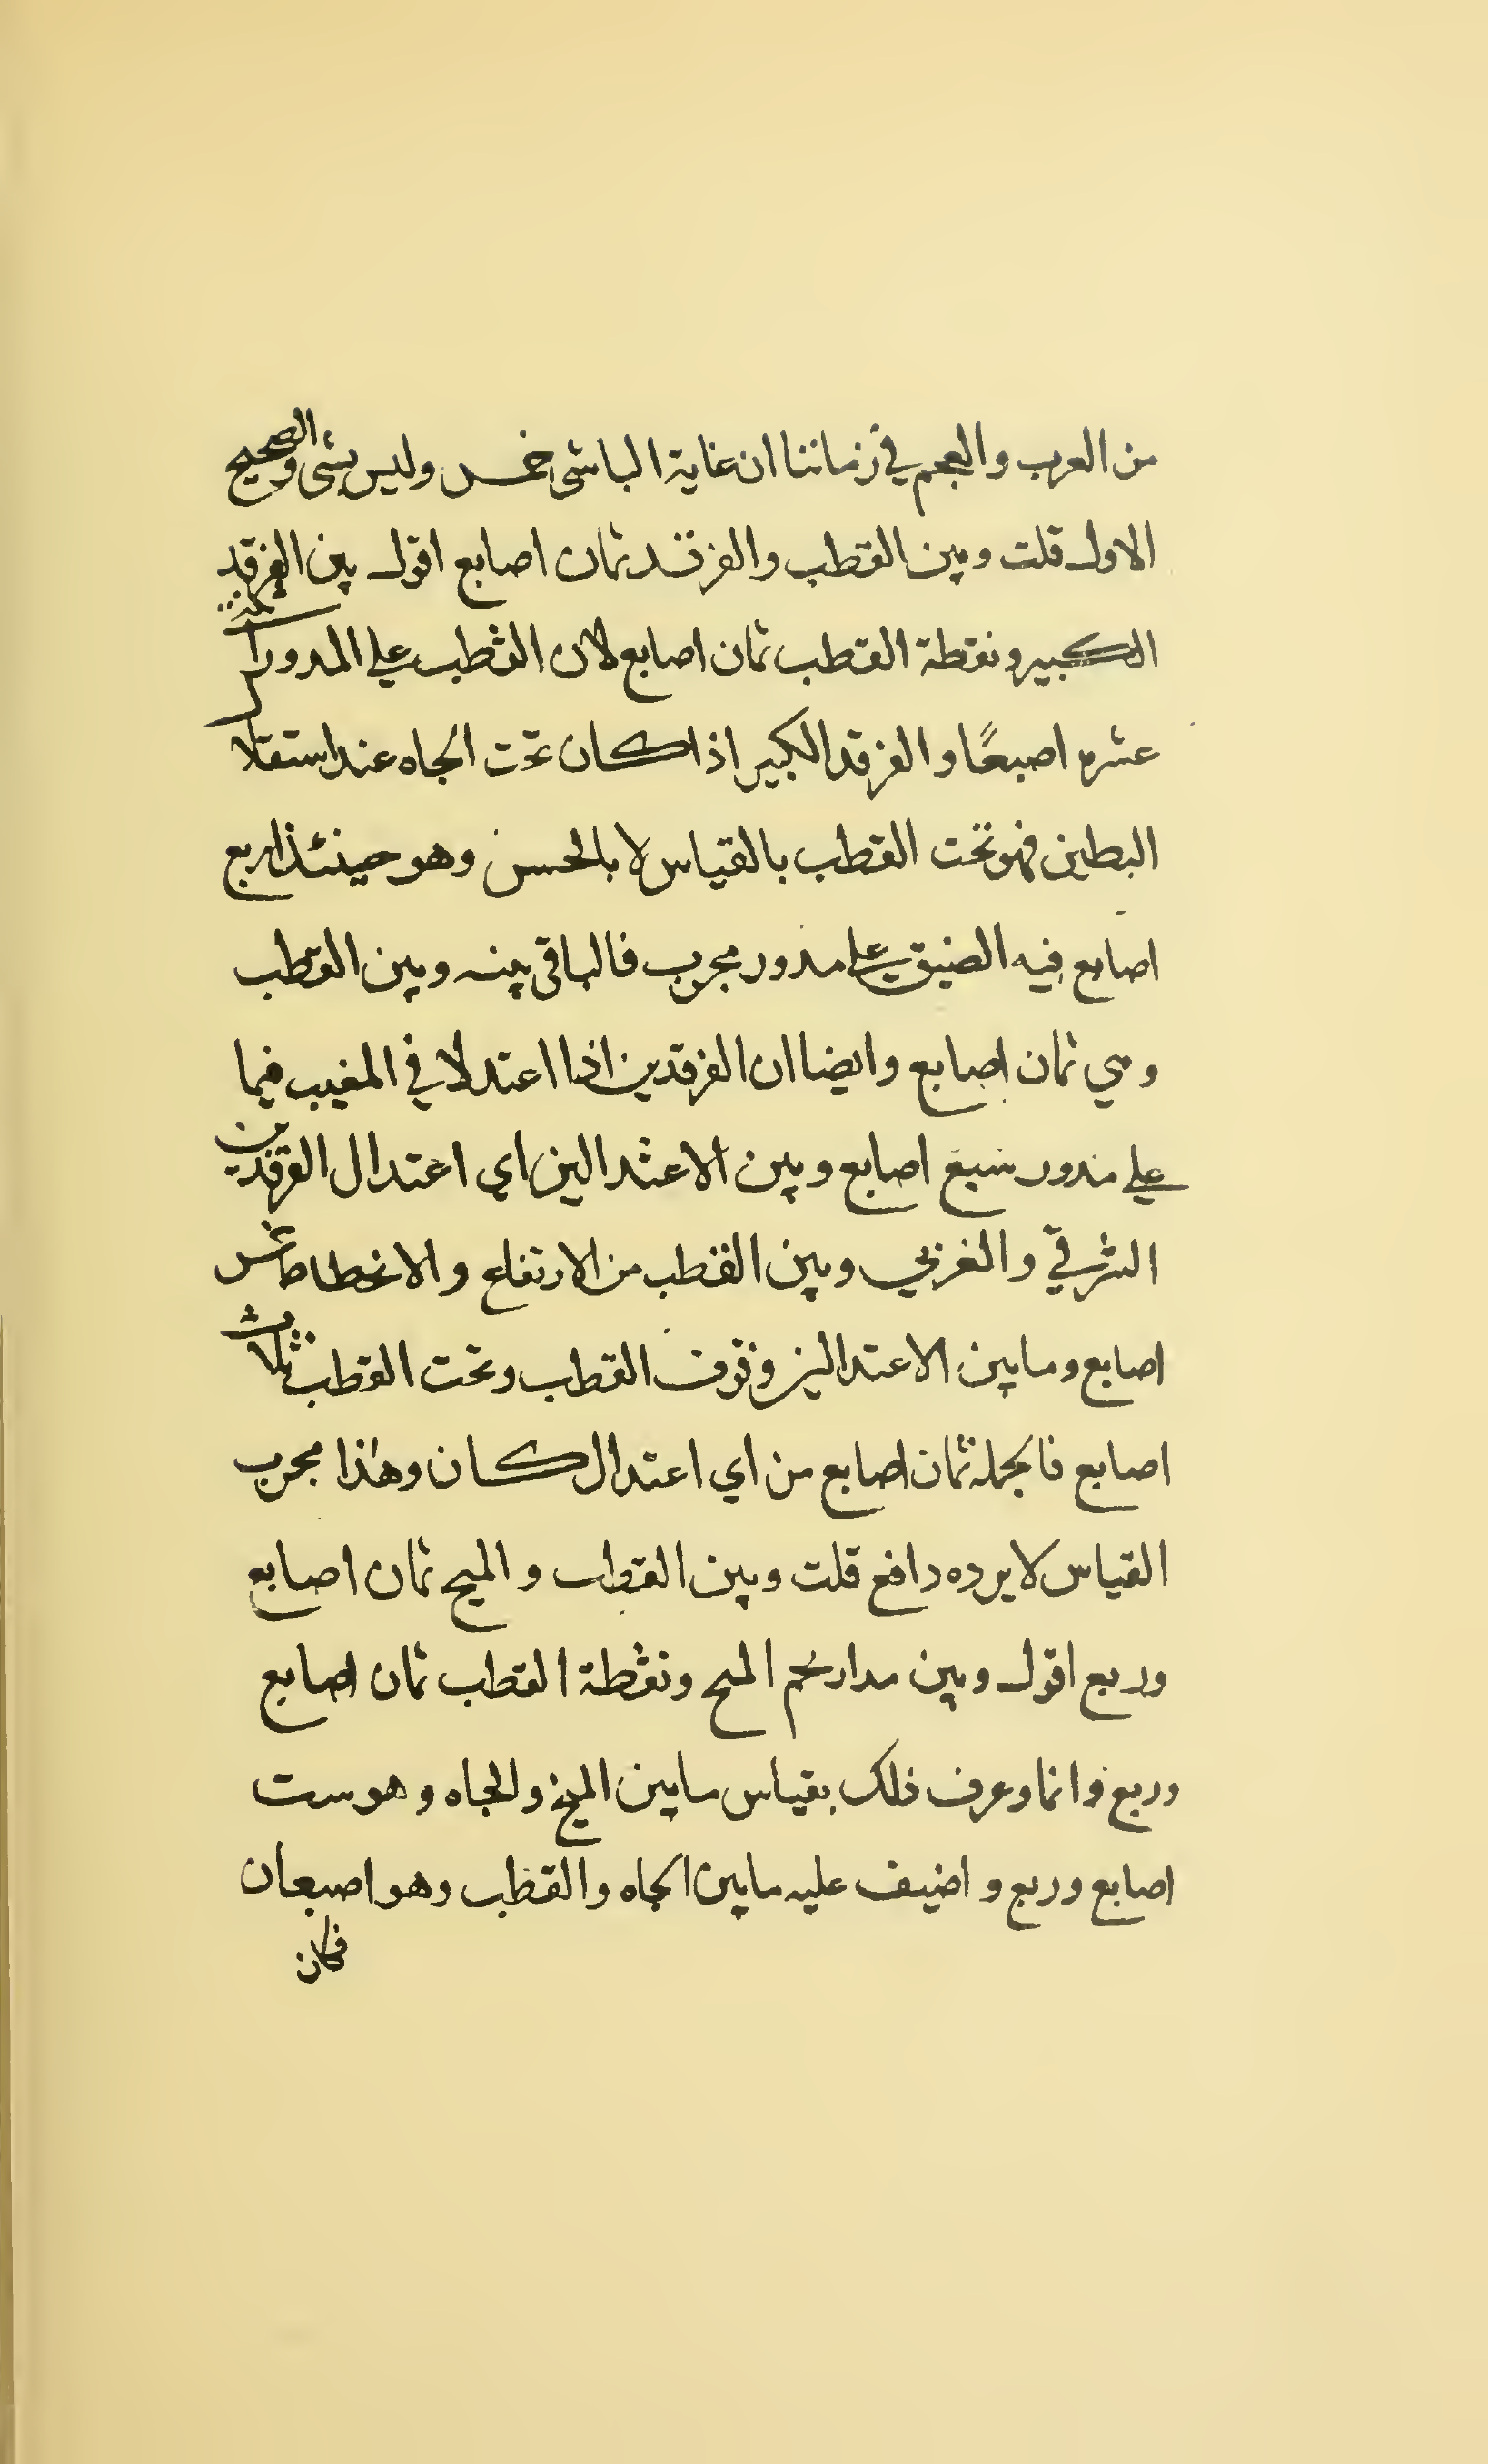 من العرب والعجم في زماننا ان غاية الباشي خمس وليس بشي والصحيح
الاول قلت وبين القطب والفرقد ثمان اصابع اقول بين الفرقد
الكبير ونقطة القطب ثمان اصابع لان القطب على المدور
عشره اصبعًا والفرقد الكبير اذا كان تحت الجاه عند استقلا
البطين فهو تحت القطب بالقياس لا بالحسن وهو حينئذ اربع
اصابع فيه الضيق على مدور مجرب فالباقي بينه وبين القطب
وهي ثمان اصابع وايضا ان الفرقدين اذا اعتدلا في المغيب فيما
على مدور سبع اصابع وبين الاعتدالين اي اعتدال الفرقدين
الشرقي والغربي وبين القطب من الارتفاع والانحطاط خمس
اصابع وما بين الاعتدالين وفوق القطب وتحت القطب ثلاث
اصابع فالجمله ثمان اصابع من اي اعتدال كان وهذا مجرب
القياس لا يرده دافع قلت وبين القطب والميح ثمان اصابع
وربع اقول وبين مدار نجم الميح ونقطة القطب ثمان اصابع
وربع وانما وعرف ذلك بقياس ما بين الميخ والجاه وهو ست
اصابع وربع واضيف عليه ما بين الجاه والقطب وهو اصبعان
فكان